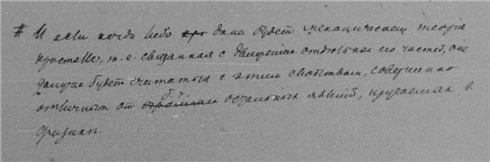 # И если когда либо дана будет механическая теорія
кристалла, т. е. связанная с движеніем отдѣльных его частей, она
должна будет считаться с этим свойством, совершенно
отличным от остальных явленій, изучаемых в
физикѣ.